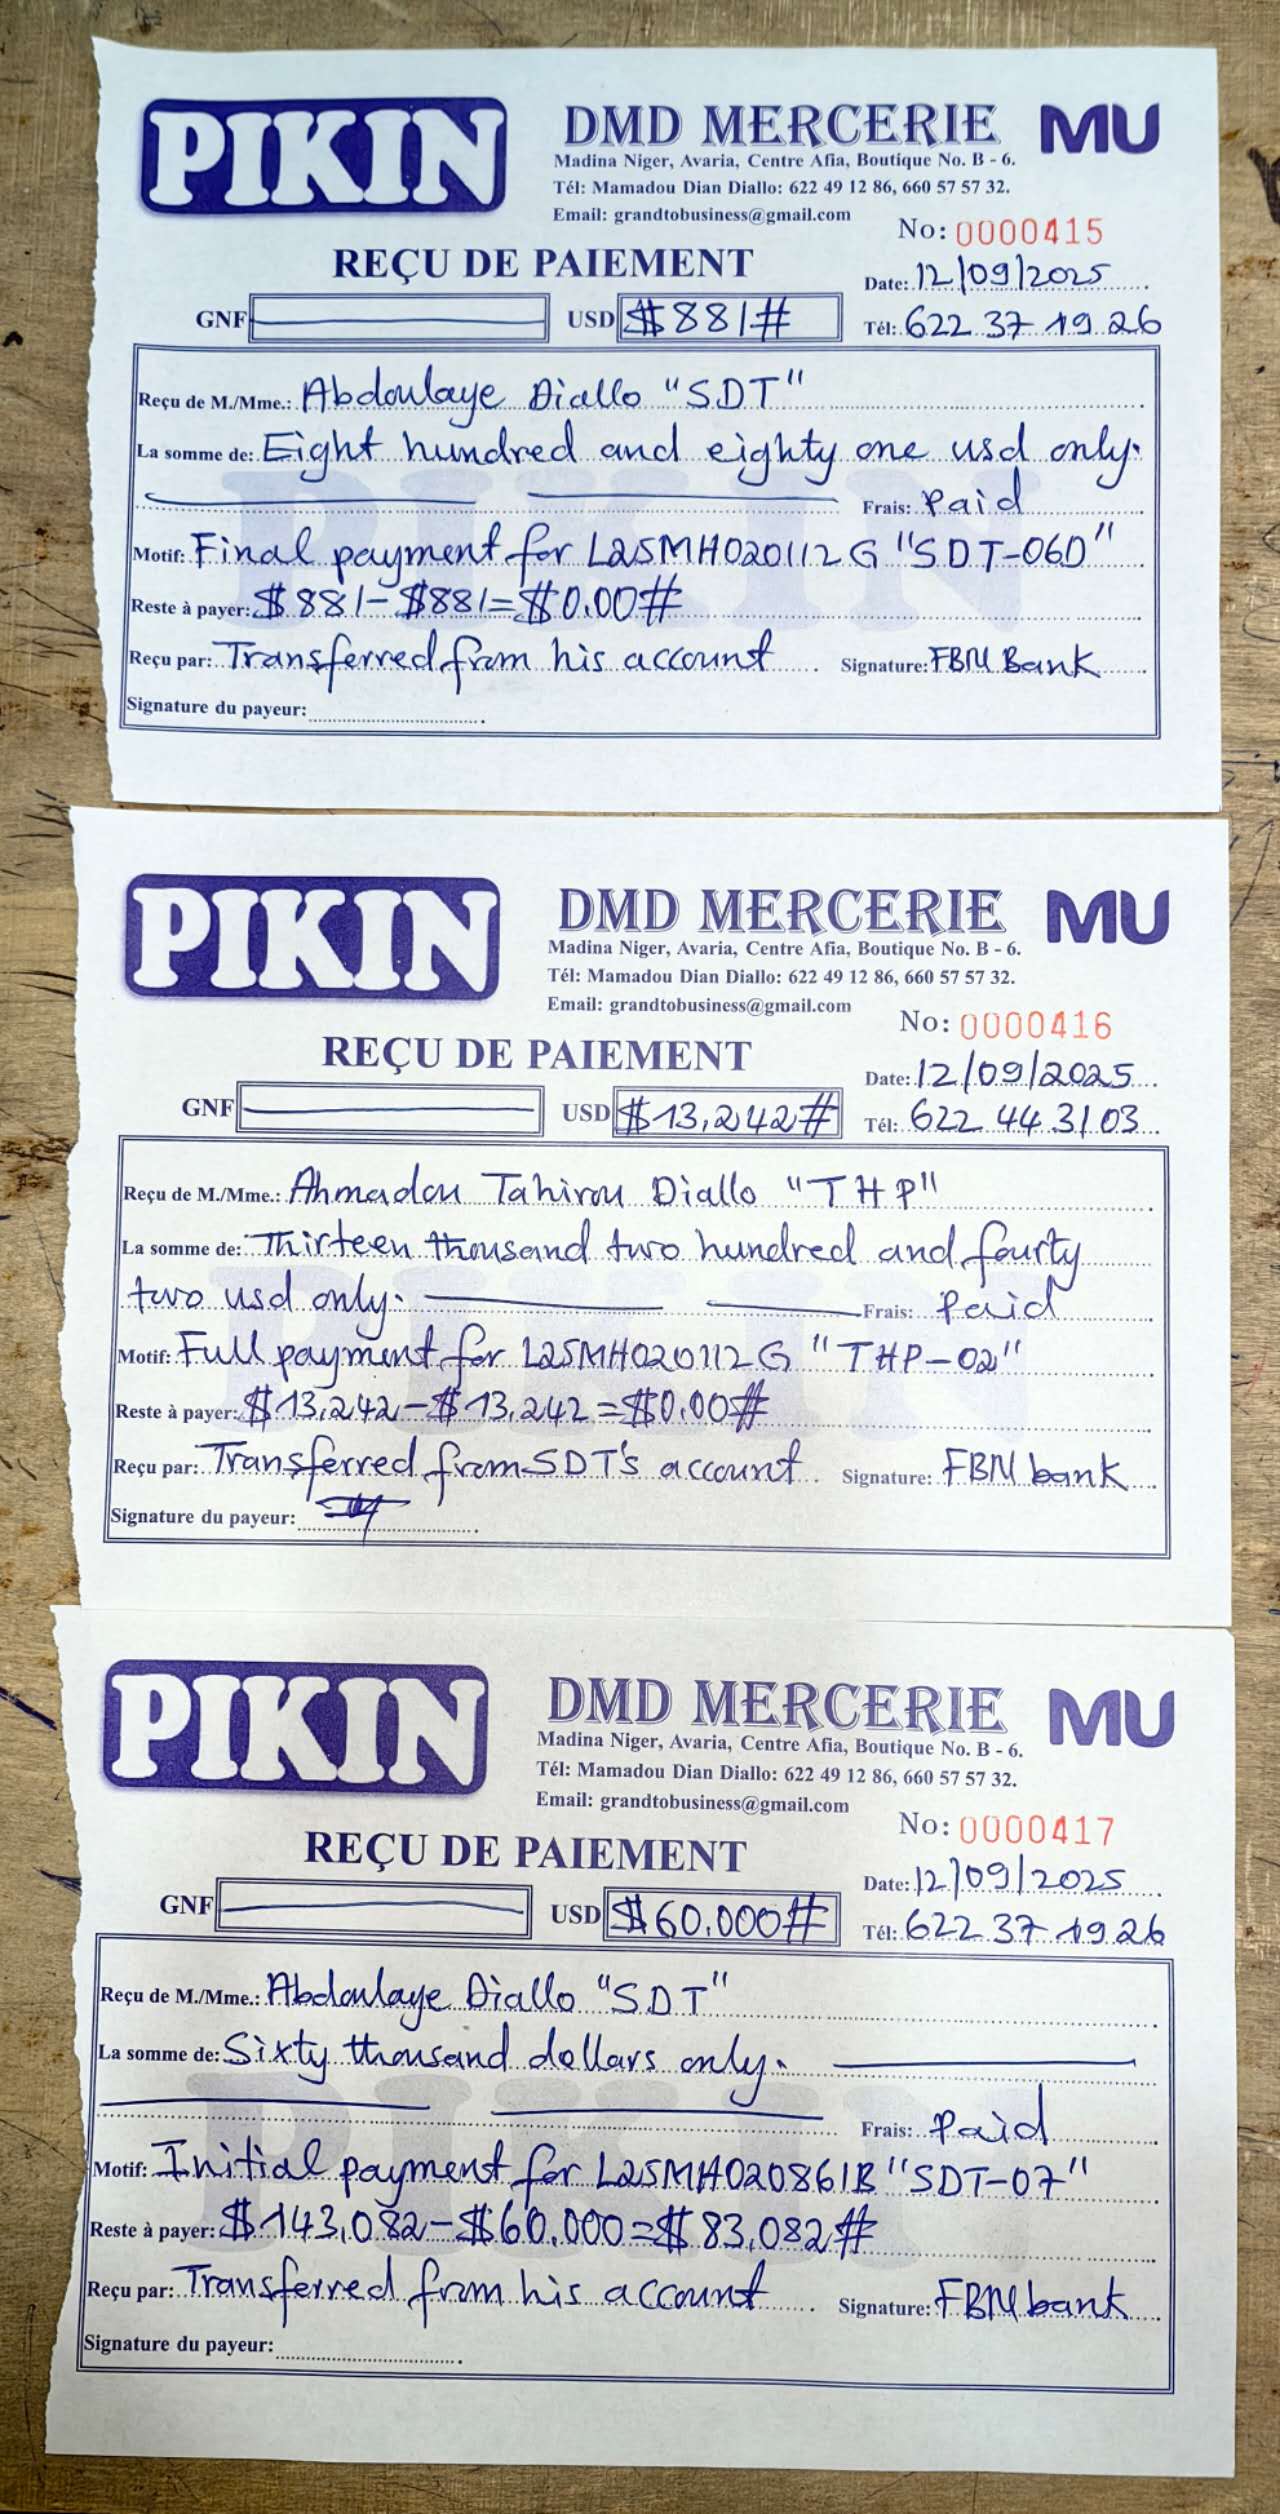 PIKIN
DMD MERCERIE MU
Madina Niger, Avaria, Centre Afia, Boutique No. B - 6.
Tél: Mamadou Dian Diallo: 622 49 12 86, 660 57 57 32.
Email: grandtobusiness@gmail.com
No: 0000415
REÇU DE PAIEMENT
Date: 12/09/2025
GNF USD $881#
Tél: 622 37 19 26
Reçu de M./Mme.: Abdoulaye Diallo "SDT"
La somme de: Eight hundred and eighty one usd only.
Frais: Paid
Motif: Final payment for L25MH020112G "SDT-06D"
Reste à payer: $881-$881=$0.00#
Reçu par: Transferred from his account Signature: FBN Bank
Signature du payeur:
PIKIN
DMD MERCERIE MU
Madina Niger, Avaria, Centre Afia, Boutique No. B - 6.
Tél: Mamadou Dian Diallo: 622 49 12 86, 660 57 57 32.
Email: grandtobusiness@gmail.com
No: 0000416
REÇU DE PAIEMENT
Date: 12/09/2025
GNF USD $13,242#
Tél: 622 44 31 03
Reçu de M./Mme.: Ahmadou Tahirou Diallo "THP"
La somme de: Thirteen thousand two hundred and fourty
two usd only. Frais: Paid
Motif: Full payment for L25MH020112G "THP-02"
Reste à payer: $13,242-$13,242=$0.00#
Reçu par: Transferred from SDT's account Signature: FBN bank
Signature du payeur:
PIKIN
DMD MERCERIE MU
Madina Niger, Avaria, Centre Afia, Boutique No. B - 6.
Tél: Mamadou Dian Diallo: 622 49 12 86, 660 57 57 32.
Email: grandtobusiness@gmail.com
No: 0000417
REÇU DE PAIEMENT
Date: 12/09/2025
GNF USD $60,000#
Tél: 622 37 19 26
Reçu de M./Mme.: Abdoulaye Diallo "SDT"
La somme de: Sixty thousand dollars only.
Frais: Paid
Motif: Initial payment for L25MH020861B "SDT-07"
Reste à payer: $143,082-$60,000=$83,082#
Reçu par: Transferred from his account Signature: FBN bank
Signature du payeur: